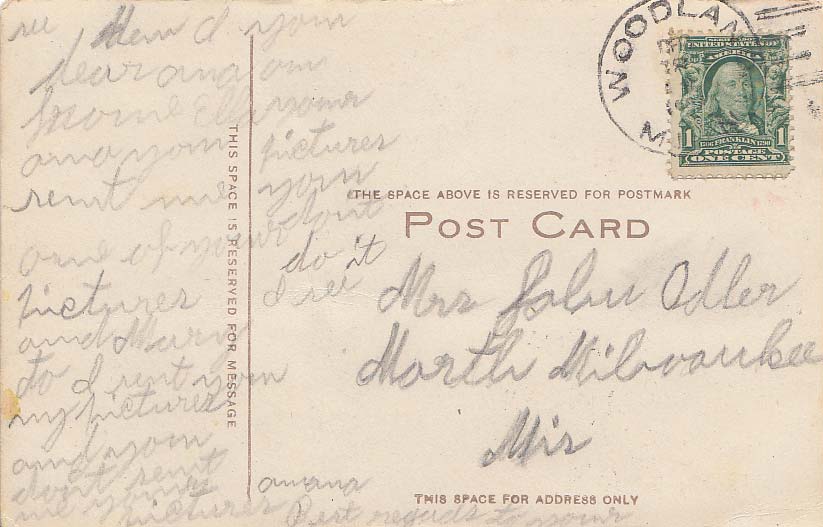 dear and
home Ella your
and your pictures
sent me your
one of your dont
do it
pictures I see
and Mary
to I sent you
my pictures
and you
dont sent
me your
pictures
Best regards to your
THIS SPACE IS RESERVED FOR MESSAGE
WOODLAN
UNITED STATES OF
AMERICA
1 1
1706 FRANKLIN 1790
POSTAGE
ONE CENT
THE SPACE ABOVE IS RESERVED FOR POSTMARK
POST CARD
Mrs John Adler
North Milwaukee
Wis
THIS SPACE FOR ADDRESS ONLY